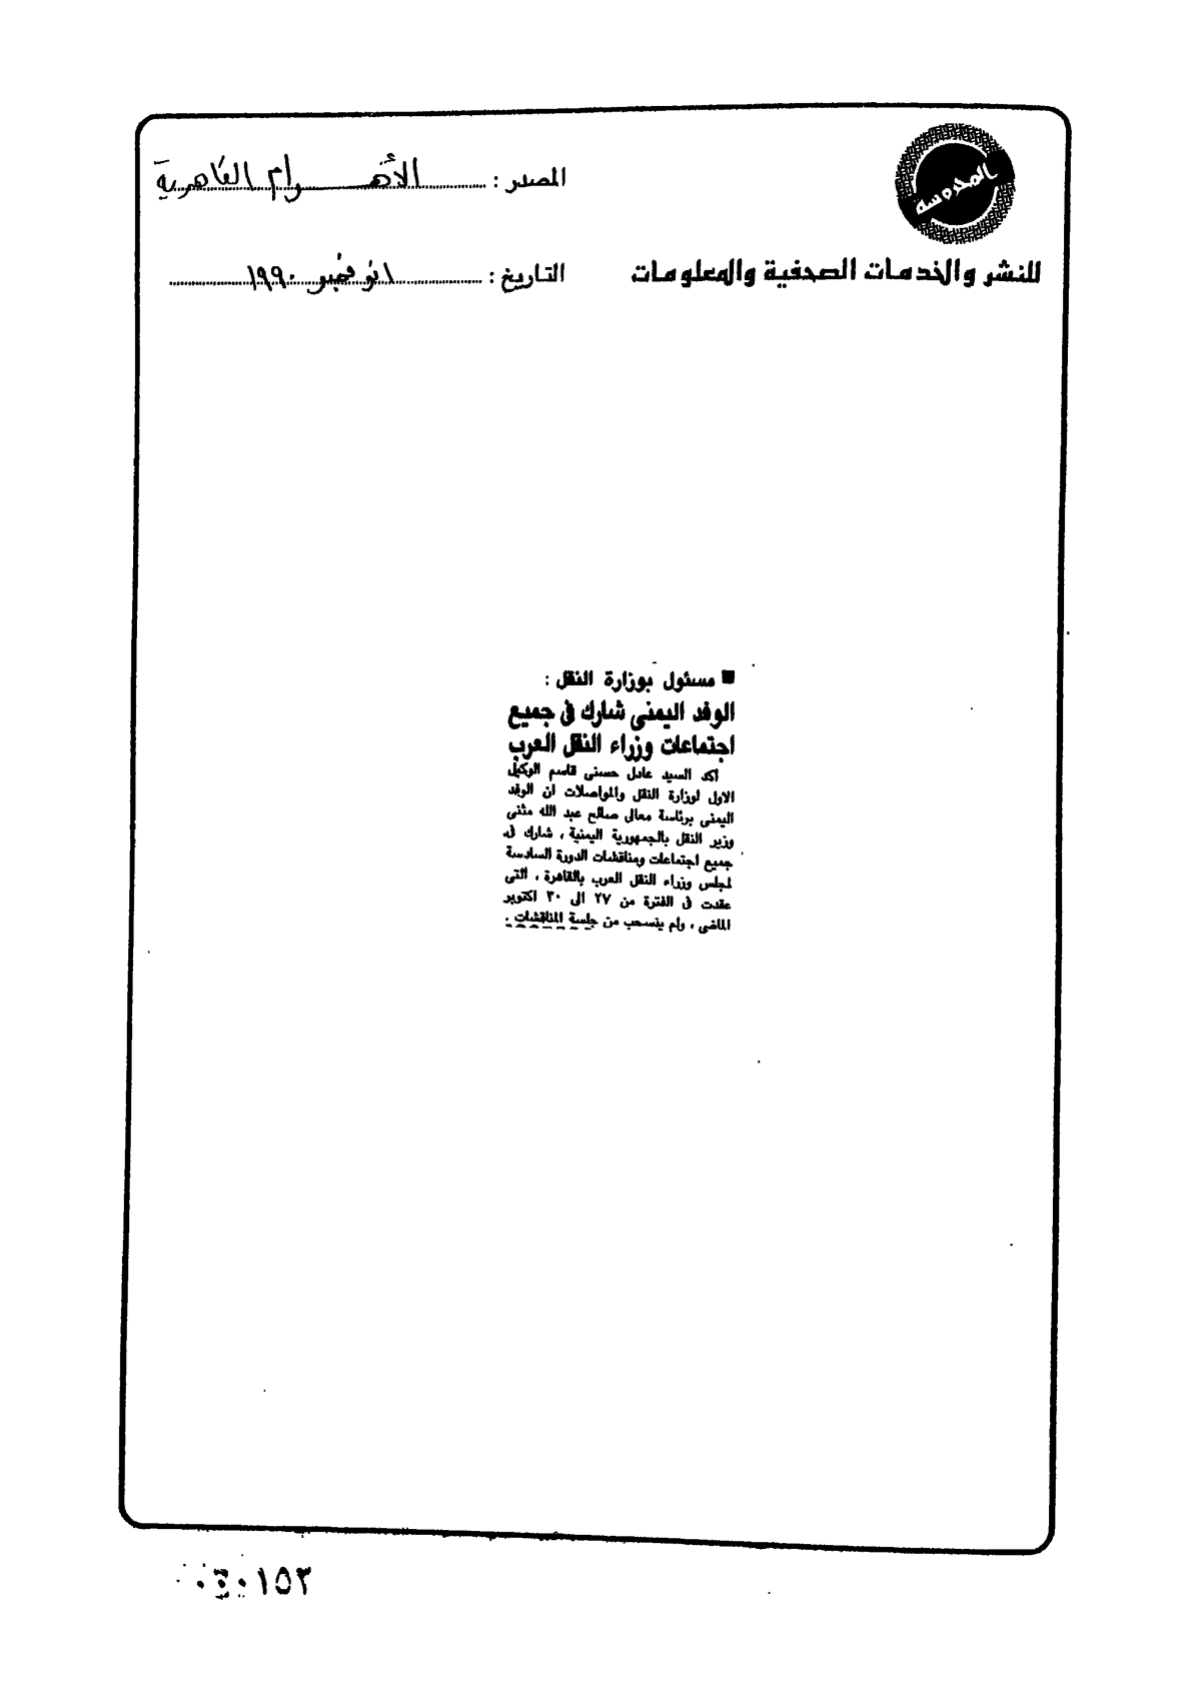 المحروسة
للنشر والخدمات الصحفية والمعلومات
المصدر : الأهرام القاهرية
التاريخ : ١ نوفمبر ١٩٩٠
■ مسئول بوزارة النقل :
الوفد اليمنى شارك فى جميع
اجتماعات وزراء النقل العرب
اكد السيد عادل حسنى قاسم الوكيل
الاول لوزارة النقل والمواصلات ان الوفد
اليمنى برئاسة معالى صالح عبد الله مثنى
وزير النقل بالجمهورية اليمنية ، شارك فى
جميع اجتماعات ومناقشات الدورة السادسة
لمجلس وزراء النقل العرب بالقاهرة ، التى
عقدت فى الفترة من ٢٧ الى ٣٠ اكتوبر
الماضى ، ولم ينسحب من جلسة المناقشات .